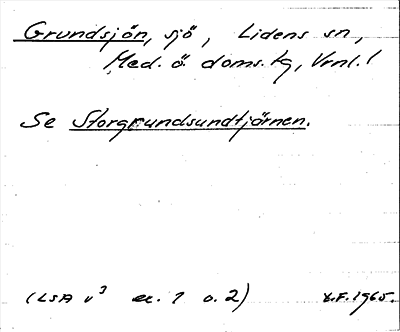 Grundsjön, sjö, Lidens sn,
Med. ö. doms.tg, Vrnl. l
Se Storgrundsundtjörnen.
(LSA v³ ex. 1 o. 2) X.F. 1965.